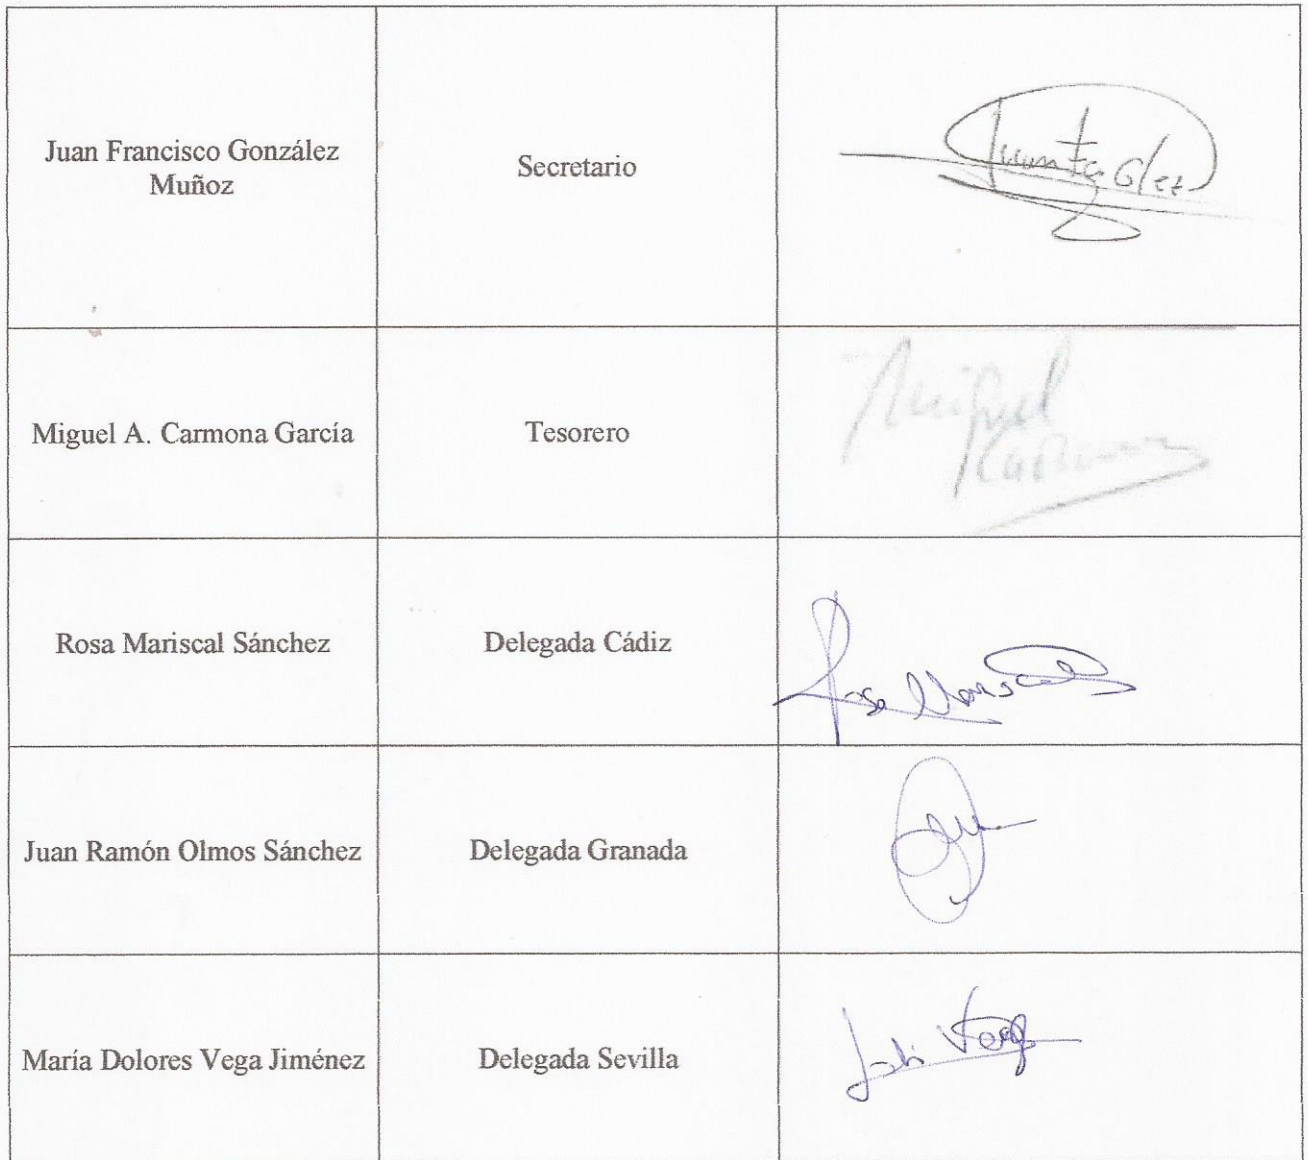 Juan Francisco González
Muñoz
Secretario
Juan Fco Glez
Miguel A. Carmona García
Tesorero
Miguel
Carmona
Rosa Mariscal Sánchez
Delegada Cádiz
Rosa Mariscal
Juan Ramón Olmos Sánchez
Delegada Granada
María Dolores Vega Jiménez
Delegada Sevilla
Loli Vega